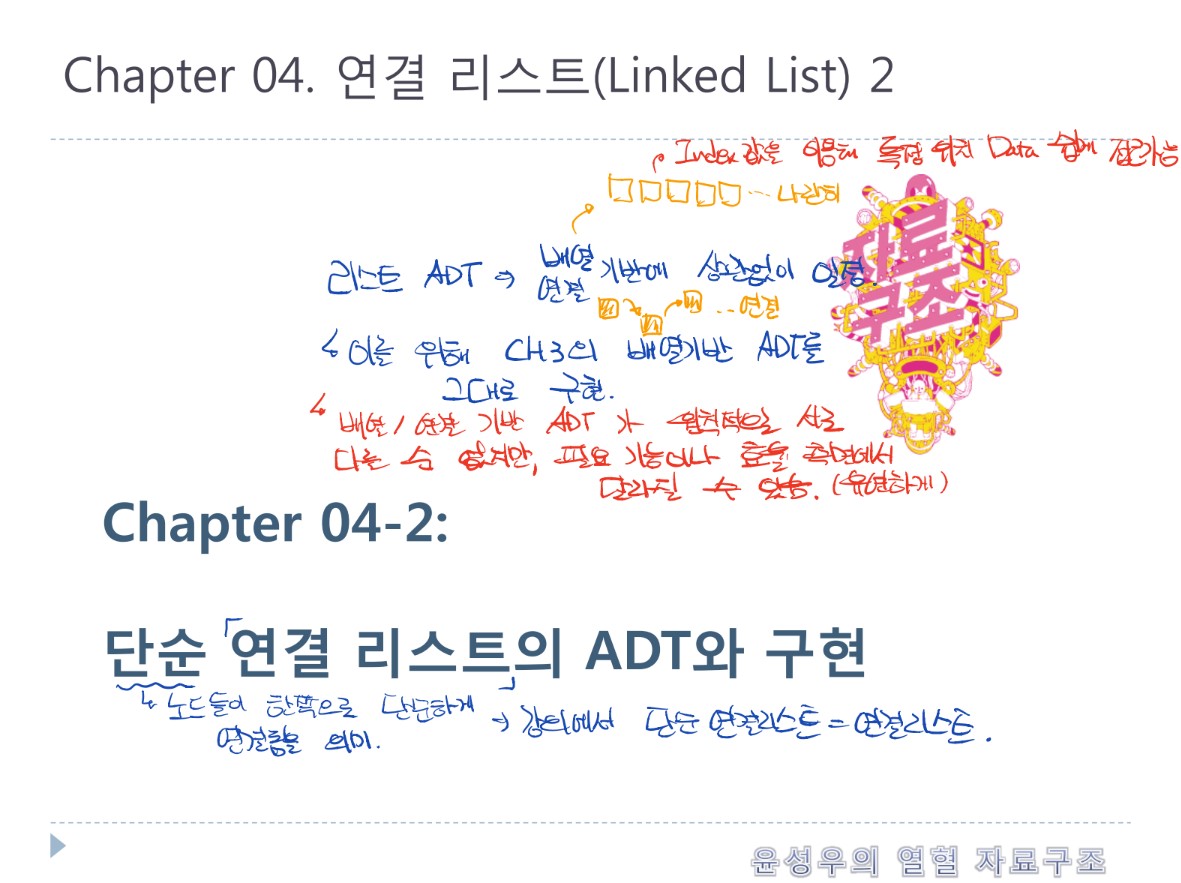 Chapter 04. 연결 리스트(Linked List) 2
Index 값을 이용해 특정 위치 Data 쉽게 접근가능
... 나란히
리스트 ADT → 배열 연결 기반에 상관없이 일정.
... 연결
이를 위해 CH.3의 배열기반 ADT를
그대로 구현.
배열 / 연결 기반 ADT가 원칙적으로 서로
다를 순 없지만, 필요 기능이나 효율 측면에서
달라질 수 있음. (유연하게)
자료구조
Chapter 04-2:
단순 「연결 리스트」의 ADT와 구현
노드들이 한쪽으로 단순하게
연결됨을 의미.
→ 강의에서 단순 연결리스트 = 연결리스트.
윤성우의 열혈 자료구조